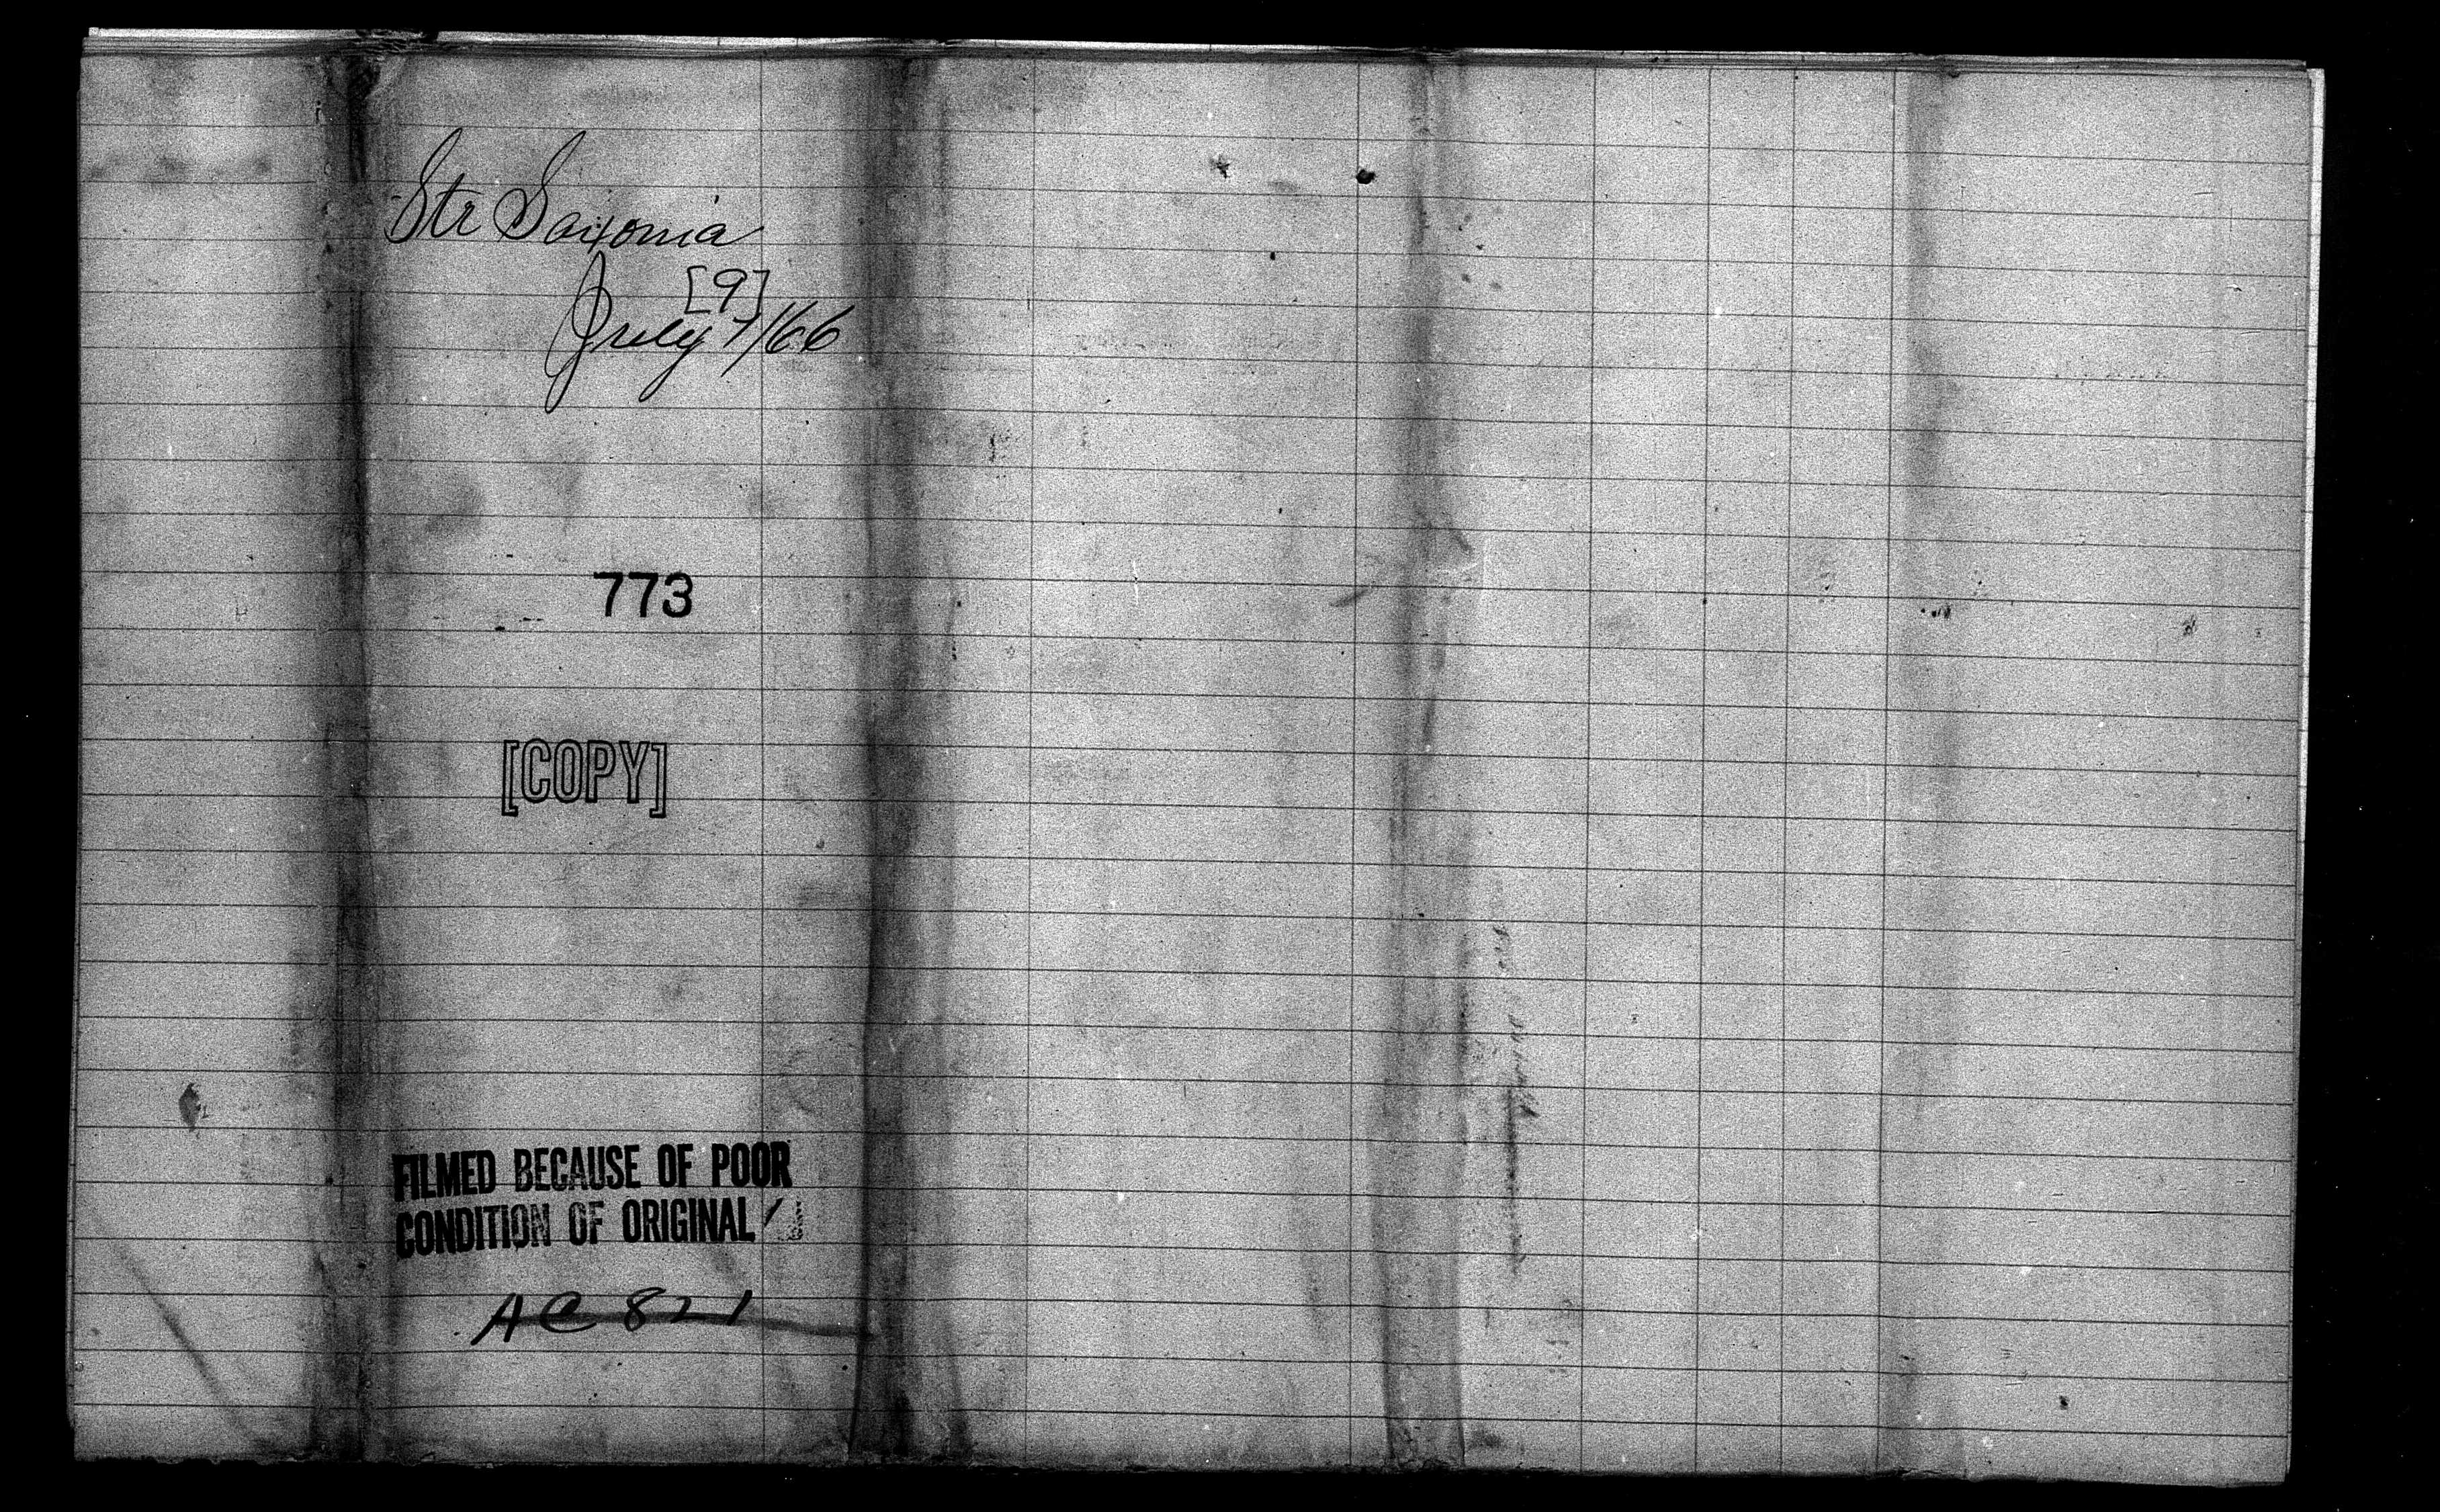 Str Saxonia
[9]
July 7/66
773
[COPY]
FILMED BECAUSE OF POOR
CONDITION OF ORIGINAL
AC 821